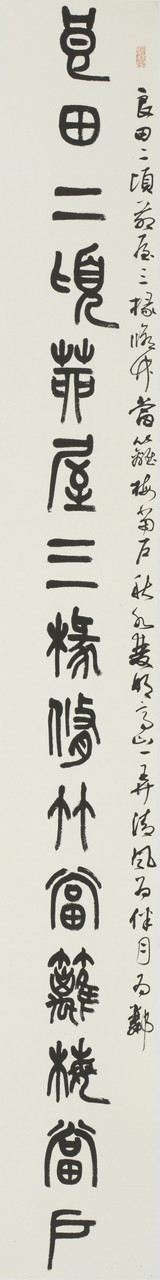 良田二頃茆屋三椽脩竹當籬梅當戶秋水雙明高山一弄清風為伴月為鄰
良田二頃茆屋三椽脩竹當籬梅當戶